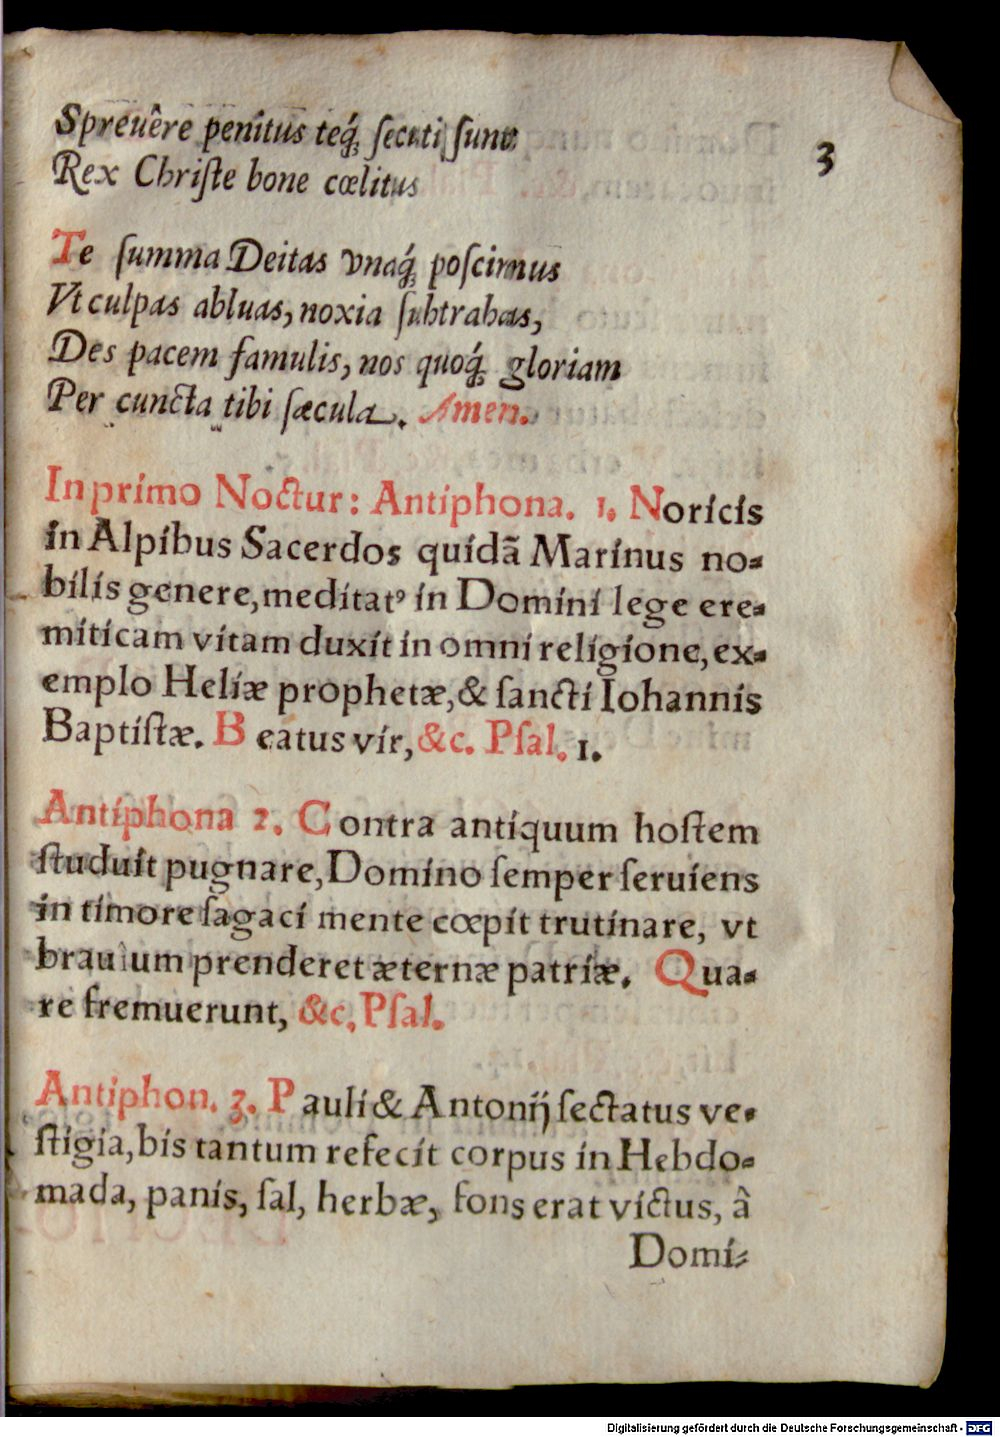 Spreuêre penitus teq́; ſecuti ſunt
3
Rex Chriſte bone cœlitus
Te ſumma Deitas vnaq́; poſcimus
Vt culpas abluas, noxia ſubtrahas,
Des pacem famulis, nos quoq́; gloriam
Per cuncta tibi ſæcula. Amen.
In primo Noctur: Antiphona. 1. Noricis
in Alpibus Sacerdos quidã Marinus no-
bilis genere, meditatꝰ in Domini lege ere-
miticam vitam duxit in omni religione, ex-
emplo Heliæ prophetæ, & ſancti Iohannis
Baptiſtæ. B eatus vir, &c. Pſal. 1.
Antiphona 2. C ontra antiquum hoſtem
ſtuduit pugnare, Domino ſemper ſeruiens
in timore ſagaci mente cœpit trutinare, vt
brauium prenderet æternæ patriæ. Qua-
re fremuerunt, &c. Pſal.
Antiphon. 3. P auli & Antonij ſectatus ve-
ſtigia, bis tantum refecit corpus in Hebdo-
mada, panis, ſal, herbæ, fons erat victus, â
Domi-
Digitalisierung gefördert durch die Deutsche Forschungsgemeinschaft - DFG